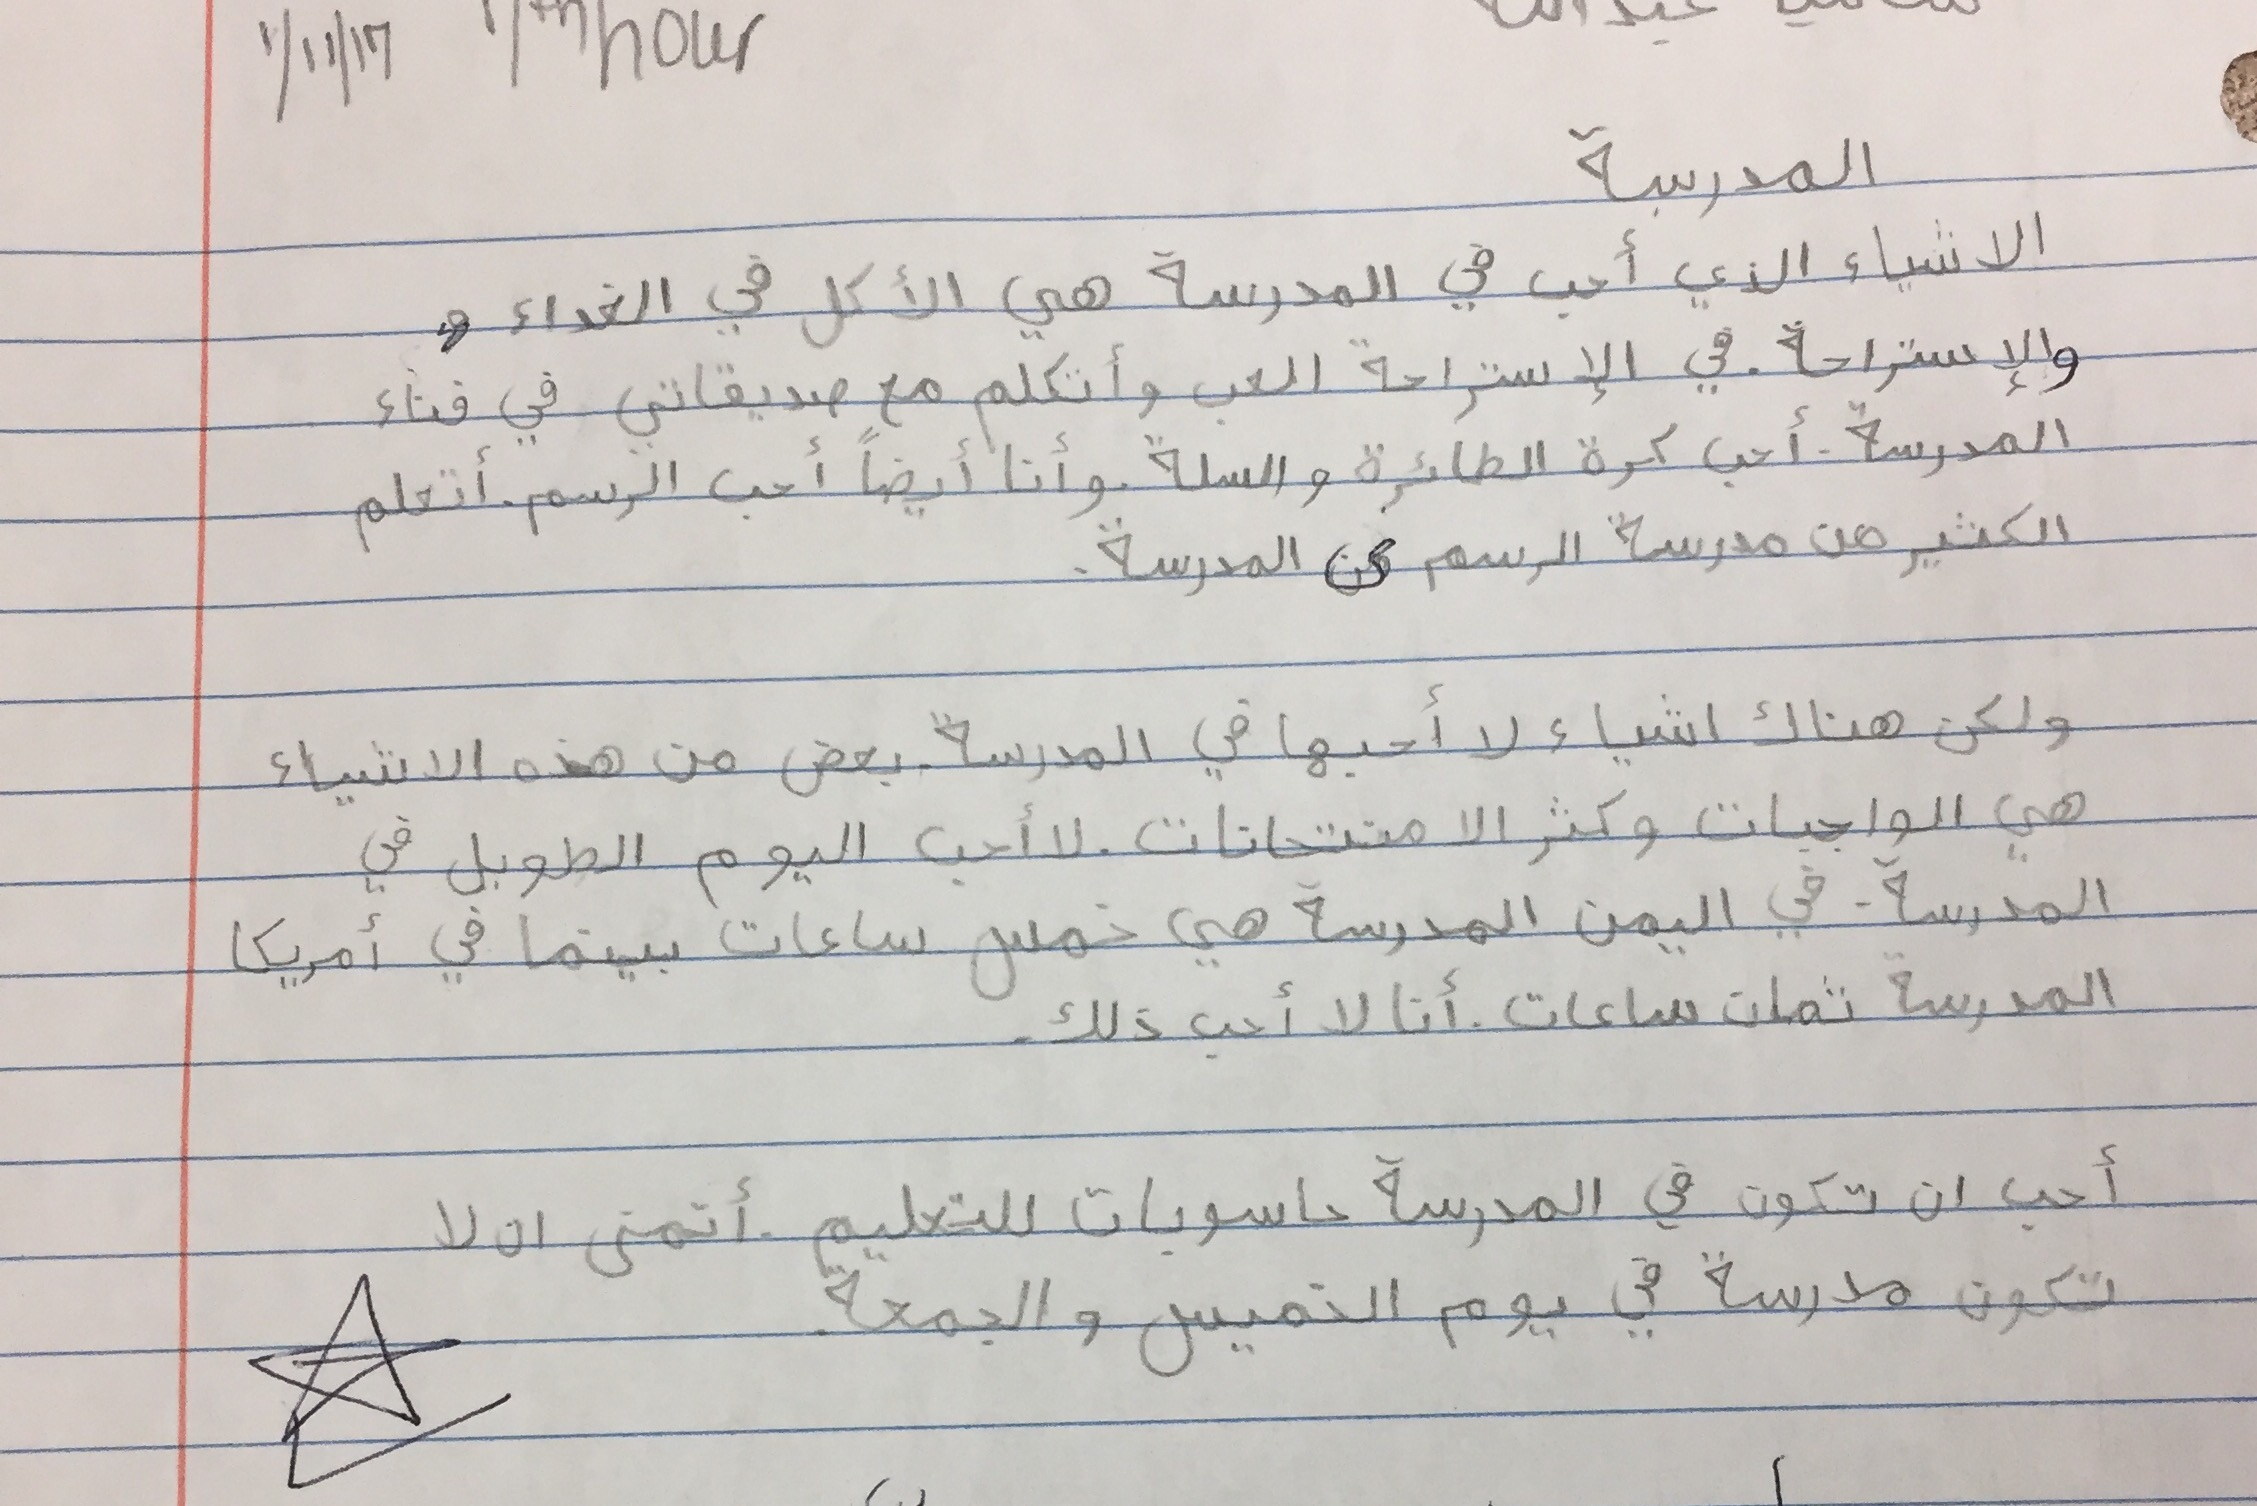 1/11/17 hour عبدالله
المدرسة
الاشياء الذي أحب في المدرسة هي الأكل في الغداء و
والإستراحة. في الإستراحة العب وأتكلم مع صديقاتي في فناء
المدرسة. أحب كرة الطائرة و السلة. وأنا أيضاً أحب الرسم. أتعلم
الكثير من مدرسة الرسم في المدرسة.
ولكن هناك اشياء لا أحبها في المدرسة. بعض من هذه الاشياء
هي الواجبات وكثر الامتتحانات. لا أحب اليوم الطويل في
المدرسة. في اليمن المدرسة هي خمس ساعات بينما في أمريكا
المدرسة ثمان ساعات. أنا لا أحب ذلك.
أحب ان تكون في المدرسة حاسوبات للتعليم. أتمنى ان لا
تكون مدرسة في يوم الخميس و الجمعة.